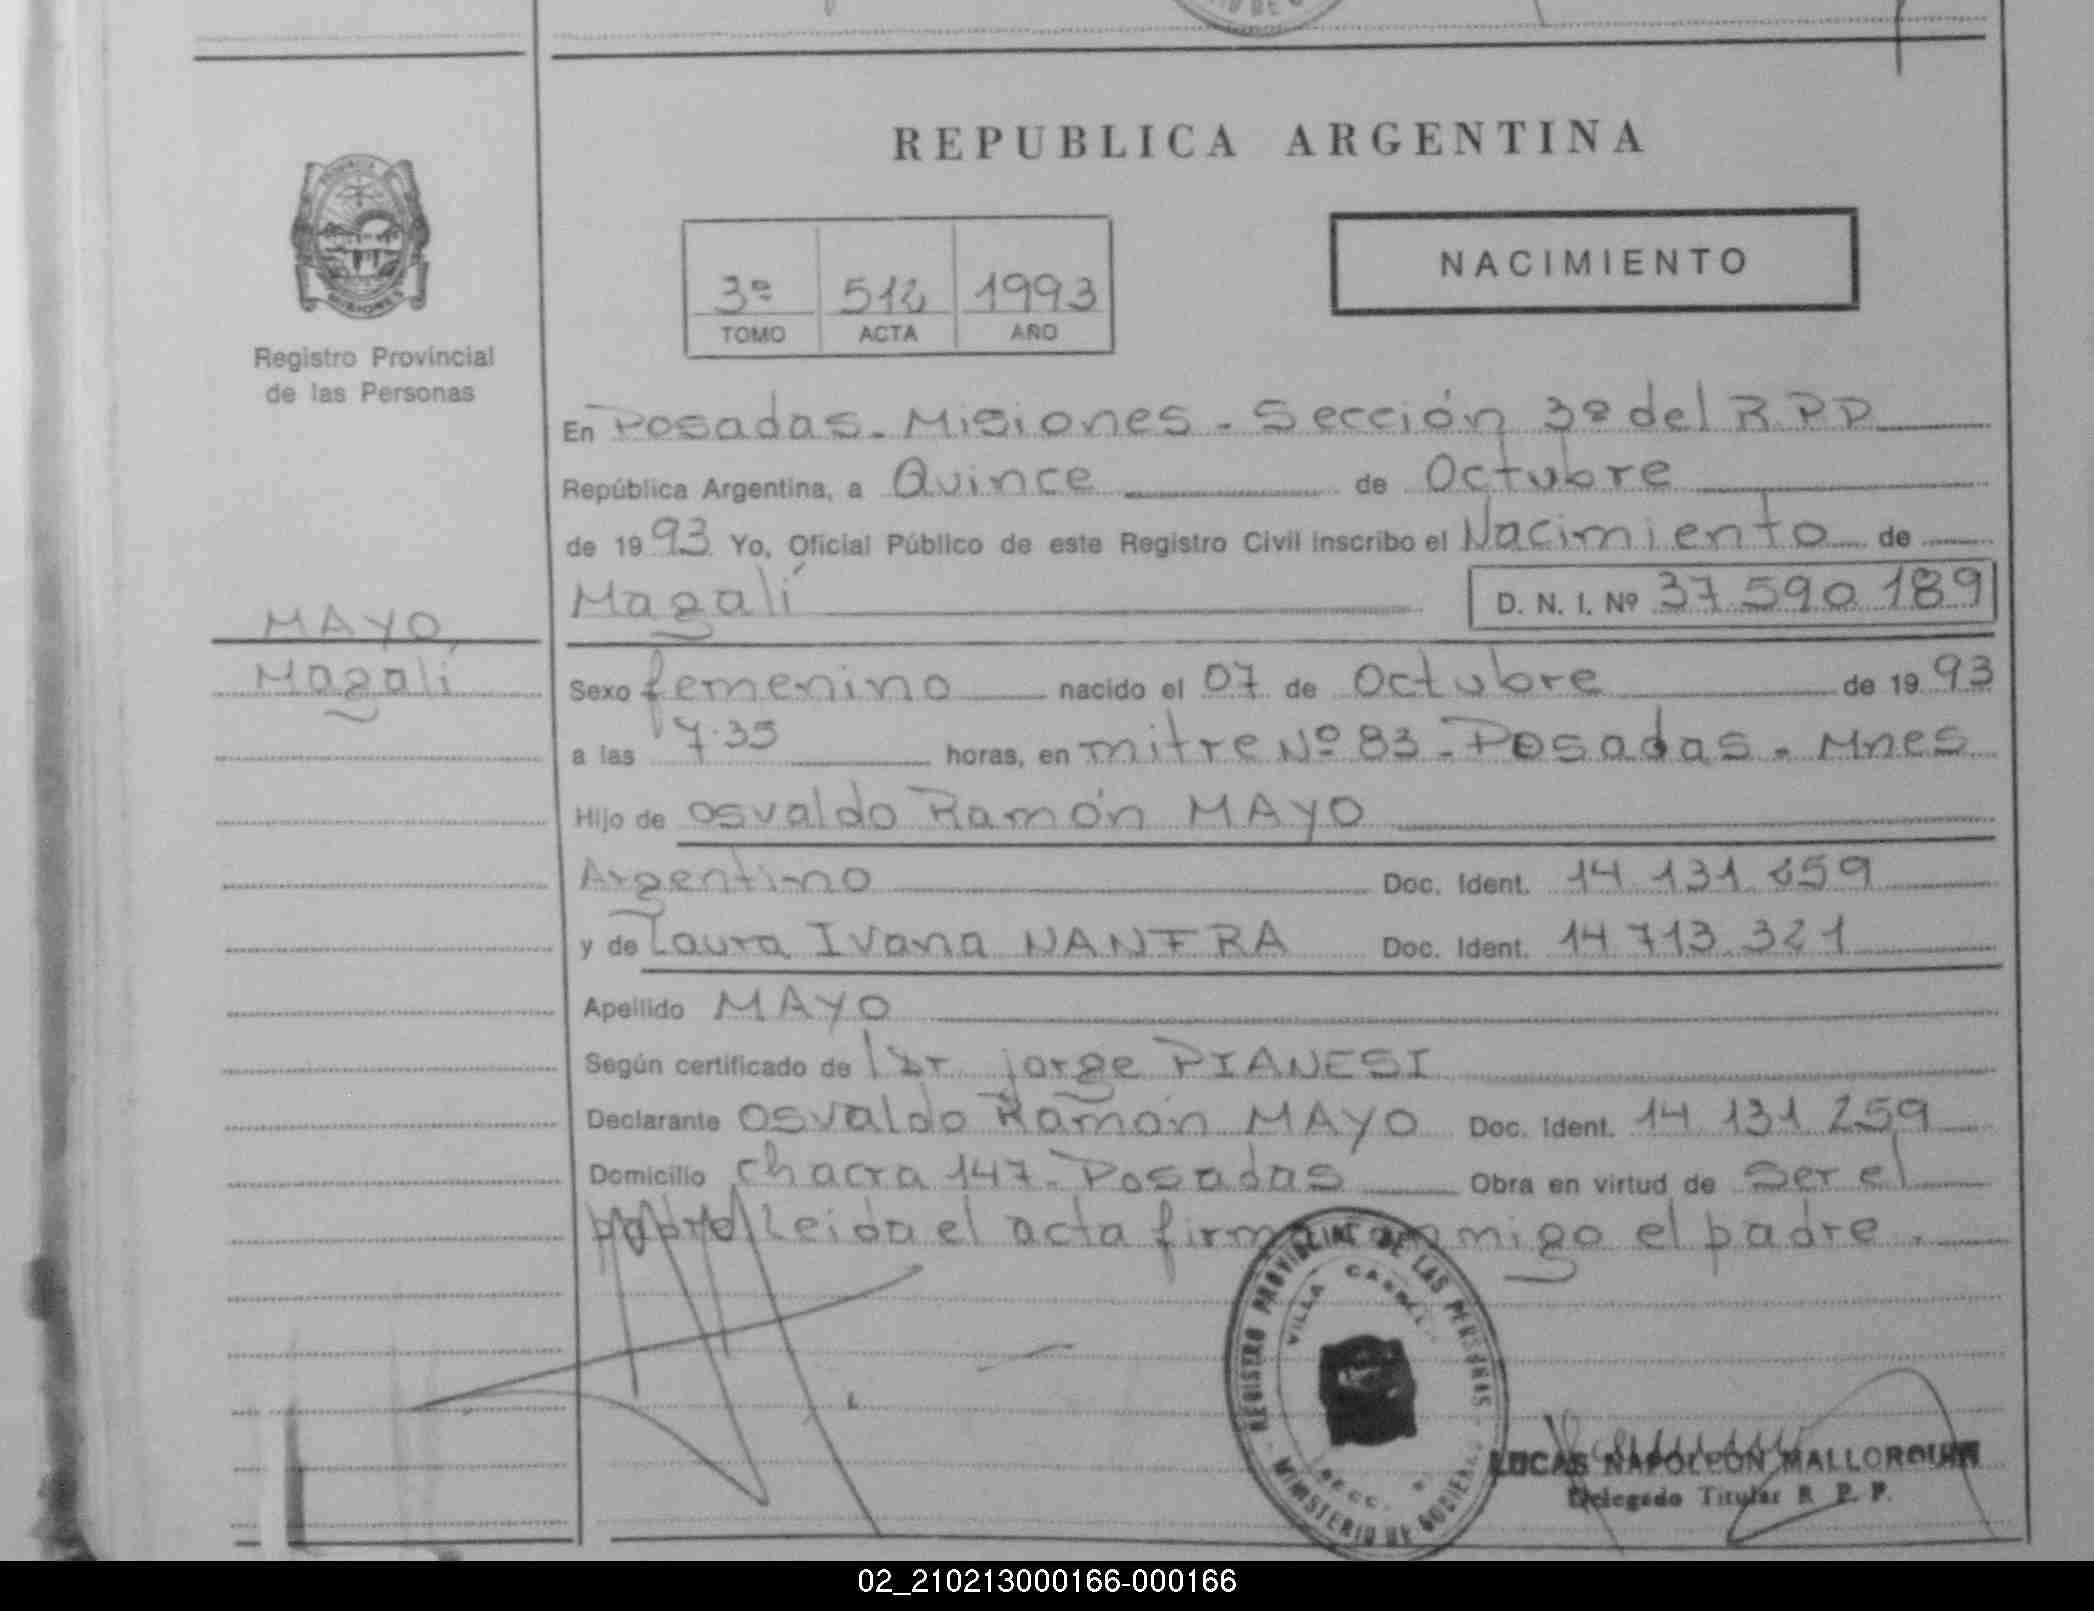 REPUBLICA ARGENTINA
NACIMIENTO
3º 512 1993
TOMO ACTA AÑO
Registro Provincial
de las Personas
En Posadas - Misiones - Sección 3º del R.P.P
República Argentina, a Quince de Octubre
de 1993 Yo, Oficial Público de este Registro Civil inscribo el Nacimiento de
Magalí D. N. I. Nº 37.590.189
MAYO,
Magalí
Sexo femenino nacido el 07 de Octubre de 1993
a las 7.35 horas, en mitre Nº 83 - Posadas - Mnes
Hijo de Osvaldo Ramón MAYO
Argentino Doc. Ident. 14.131.259
y de Laura Ivana NANFRA Doc. Ident. 14.713.321
Apellido MAYO
Según certificado de Dr. jorge PIANESI
Declarante Osvaldo Ramón MAYO Doc. Ident. 14.131.259
Domicilio chacra 147 - Posadas Obra en virtud de Ser el
padre/Leida el acta firma conmigo el padre.
REGISTRO PROVINCIAL DE LAS PERSONAS
VILLA
SECC.
MINISTERIO DE GOBIERNO
LUCAS NAPOLEON MALLORQUIN
Delegado Titular R. P. P.
02_210213000166-000166